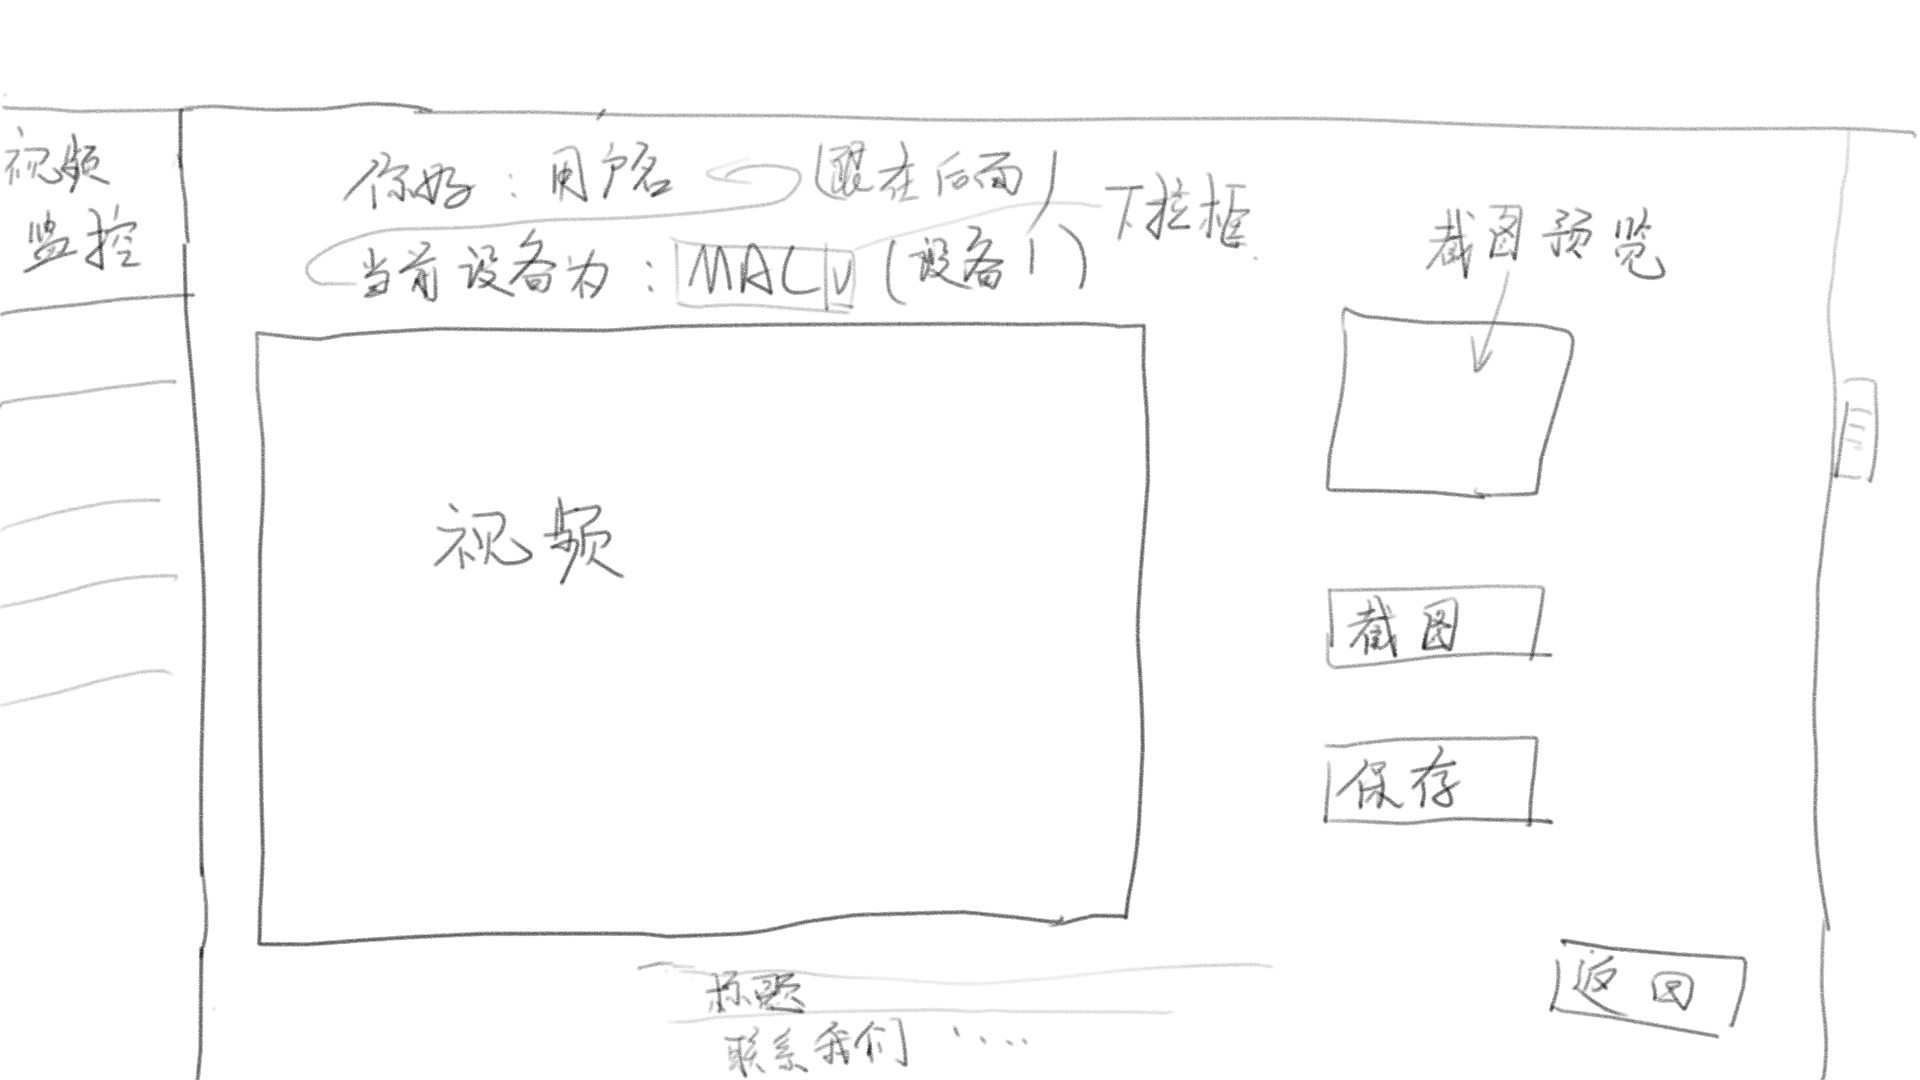 视频
监控
你好：用户名 （跟在后面）
当前设备为：MAC V（设备1）
下拉框
截图预览
视频
截图
保存
返回
标题
联系我们 ....